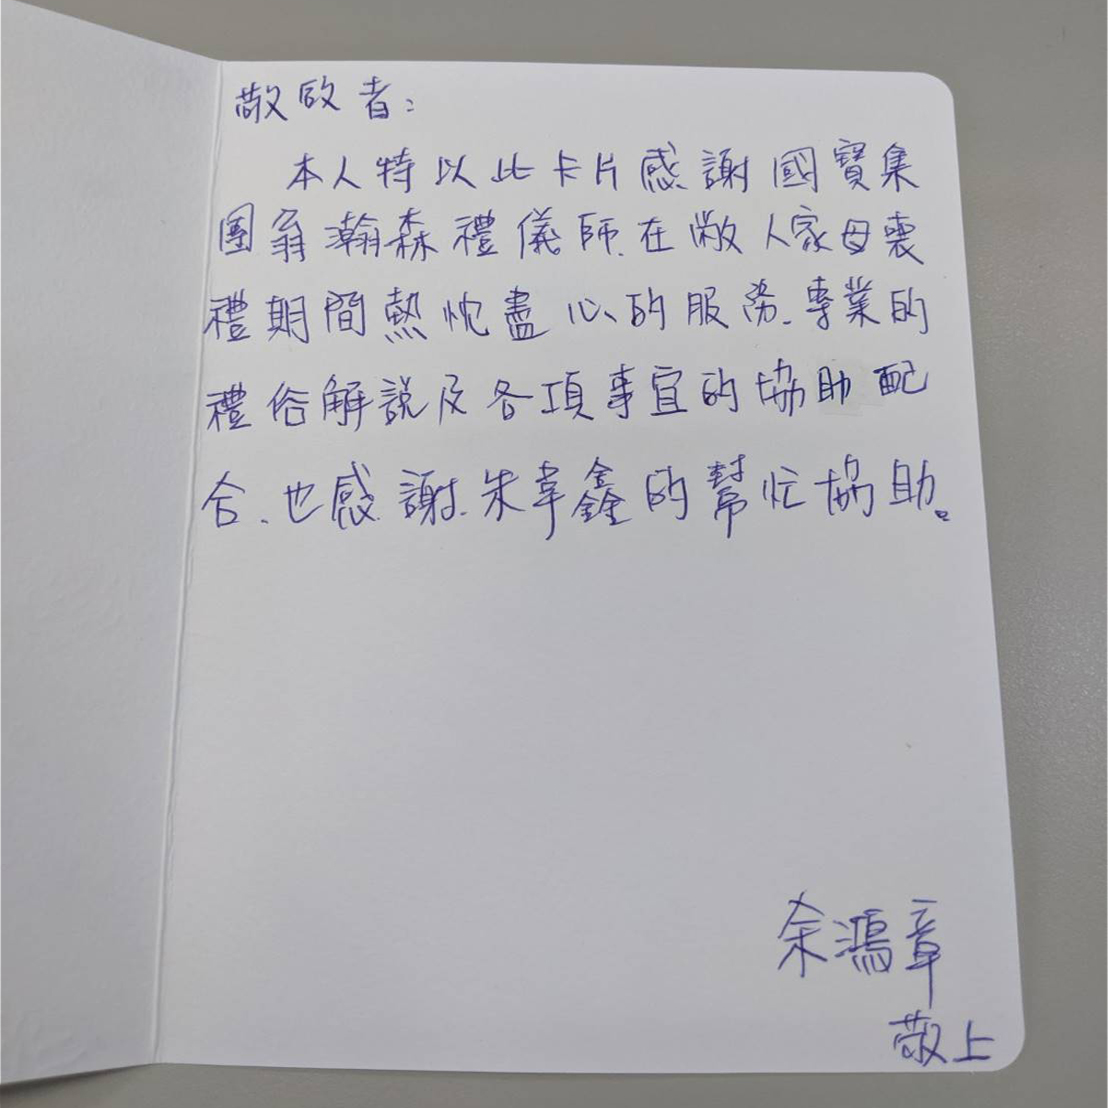 敬啟者：
本人特以此卡片感謝國寶集
團翁瀚森禮儀師.在敝人家母喪
禮期間熱忱盡心的服務.專業的
禮俗解說及各項事宜的協助配
合.也感謝.朱韋鑫的幫忙協助。
余鴻章
敬上